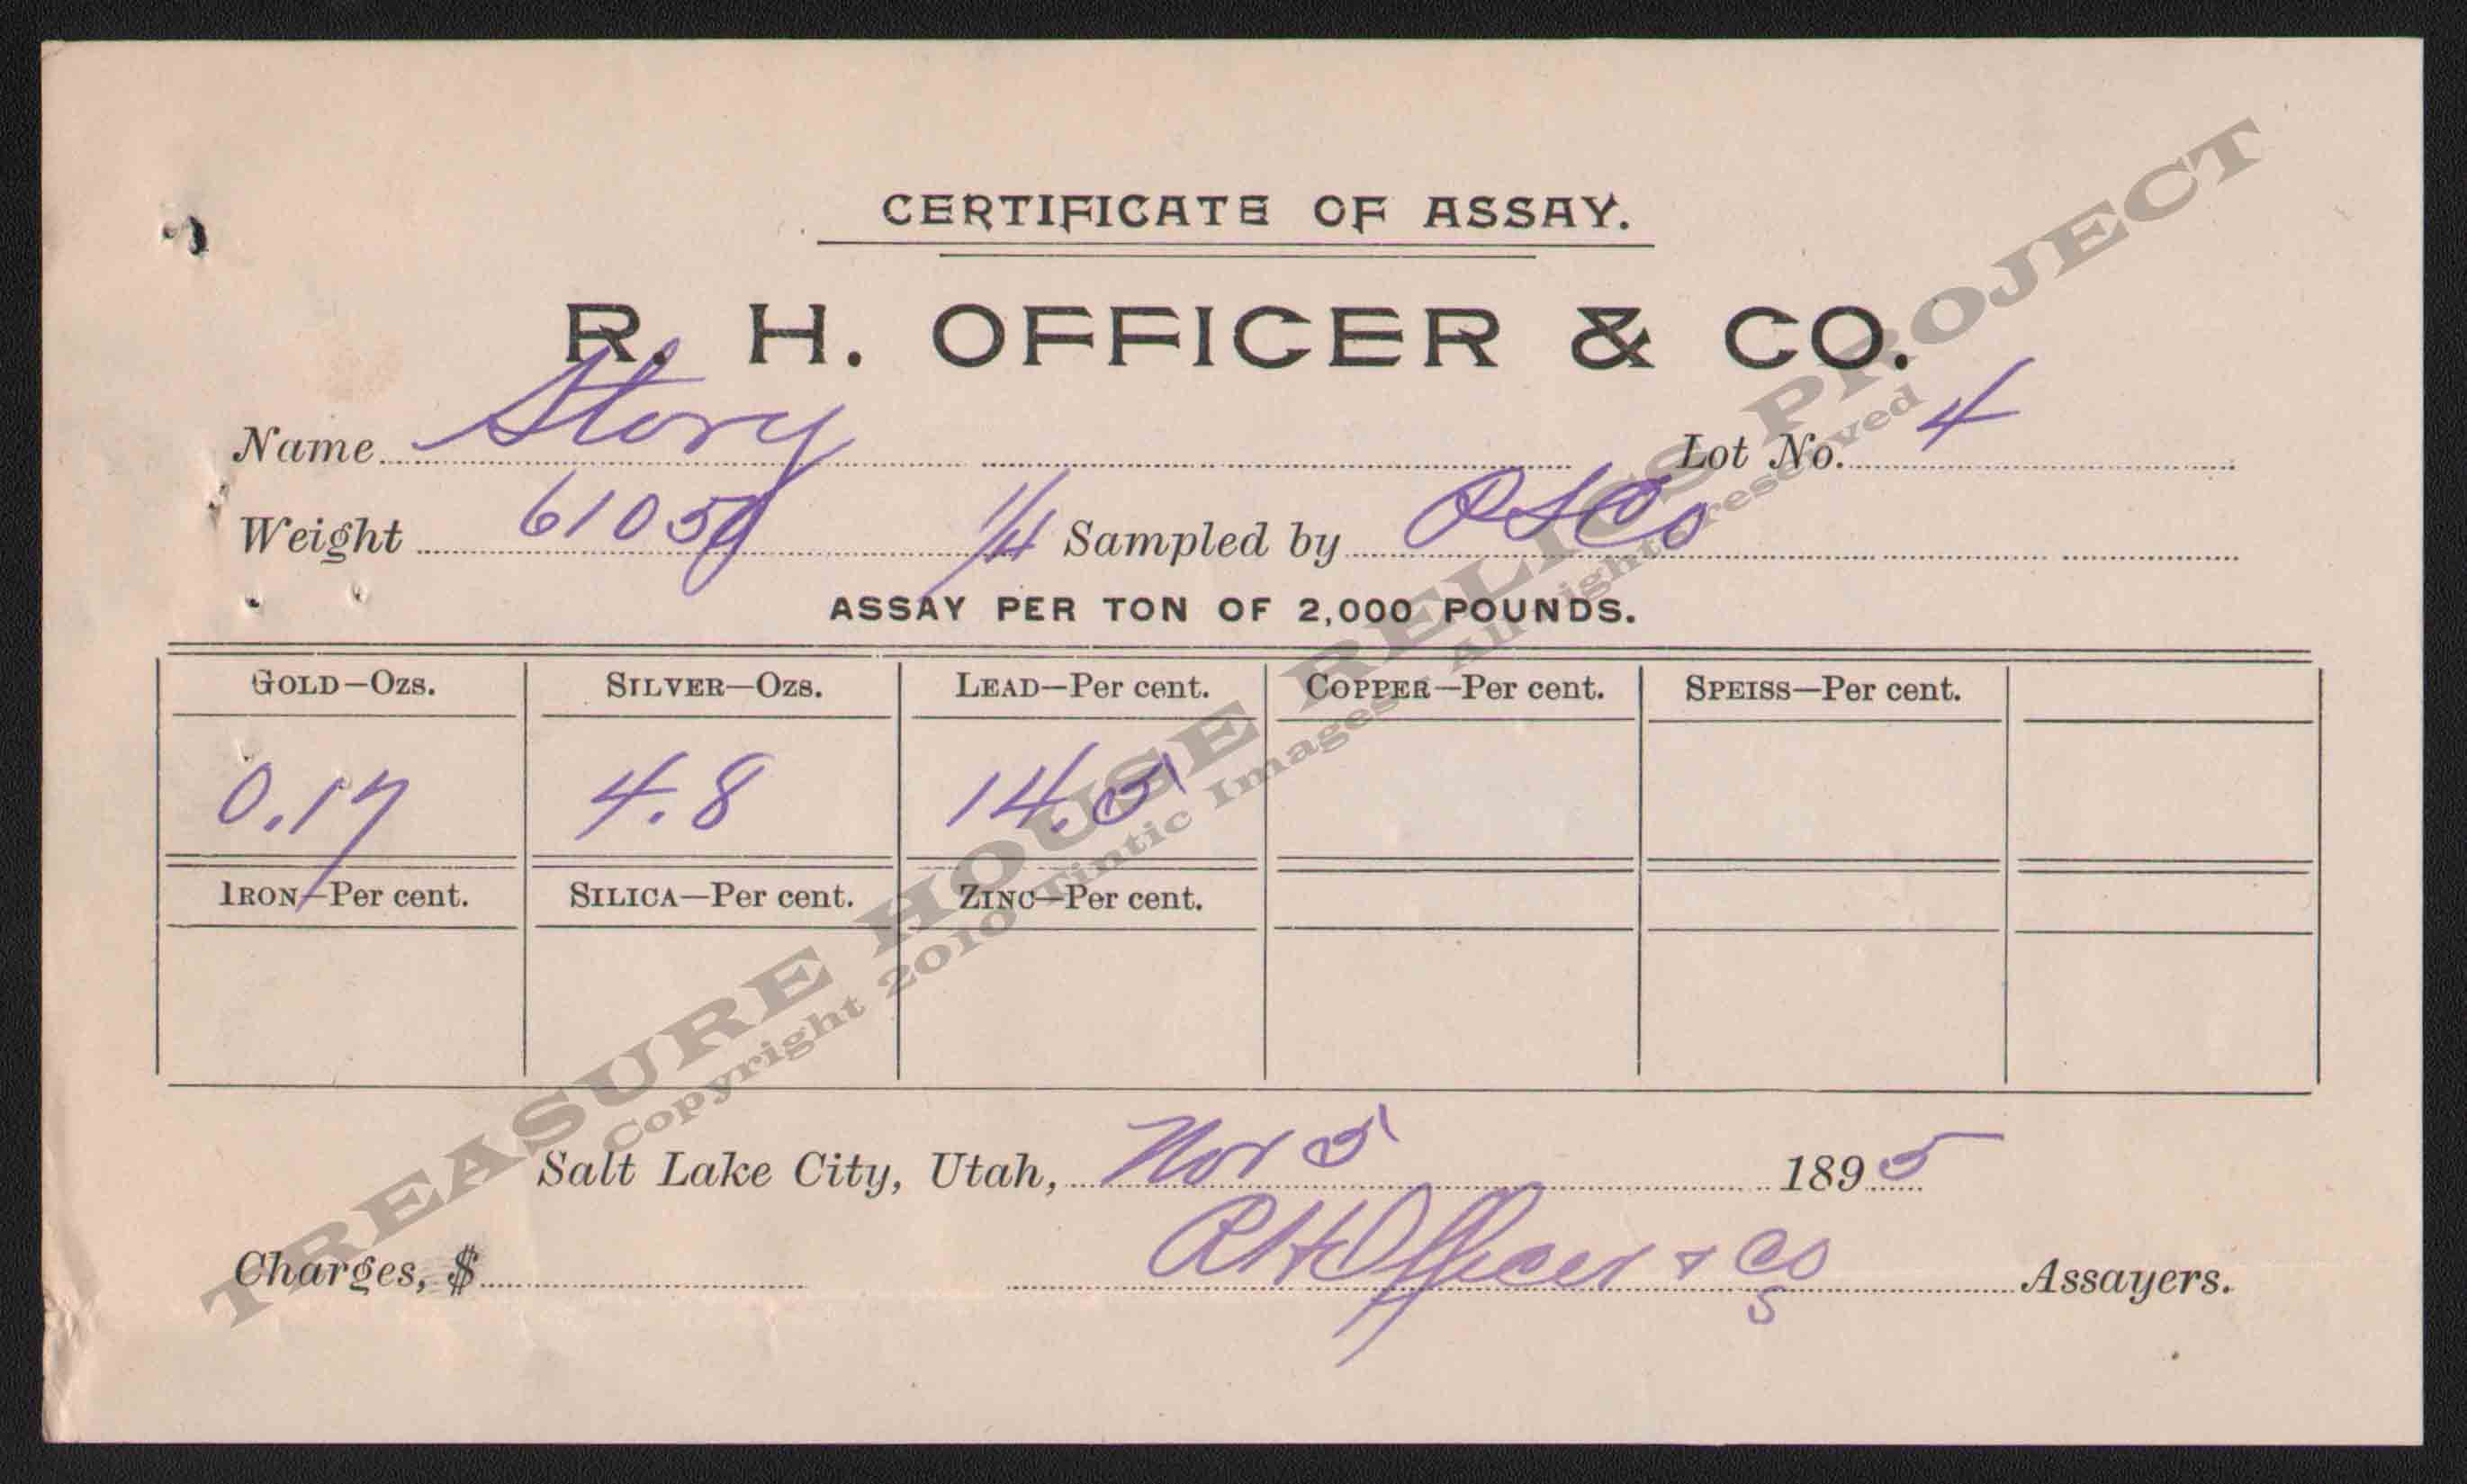 CERTIFICATE OF ASSAY.
R. H. OFFICER & CO.
Name Story Lot No. 4
Weight 61059 1/4 Sampled by PSCo
ASSAY PER TON OF 2,000 POUNDS.
GOLD—Ozs. SILVER—Ozs. LEAD—Per cent. COPPER—Per cent. SPEISS—Per cent.
0.17 4.8 14.5
IRON—Per cent. SILICA—Per cent. ZINC—Per cent.
Salt Lake City, Utah, Nov 5 1895
Charges, $ RH Officer & Co Assayers.
S
TREASURE HOUSE RELICS PROJECT
Copyright 2010 Tintic Images All rights reserved